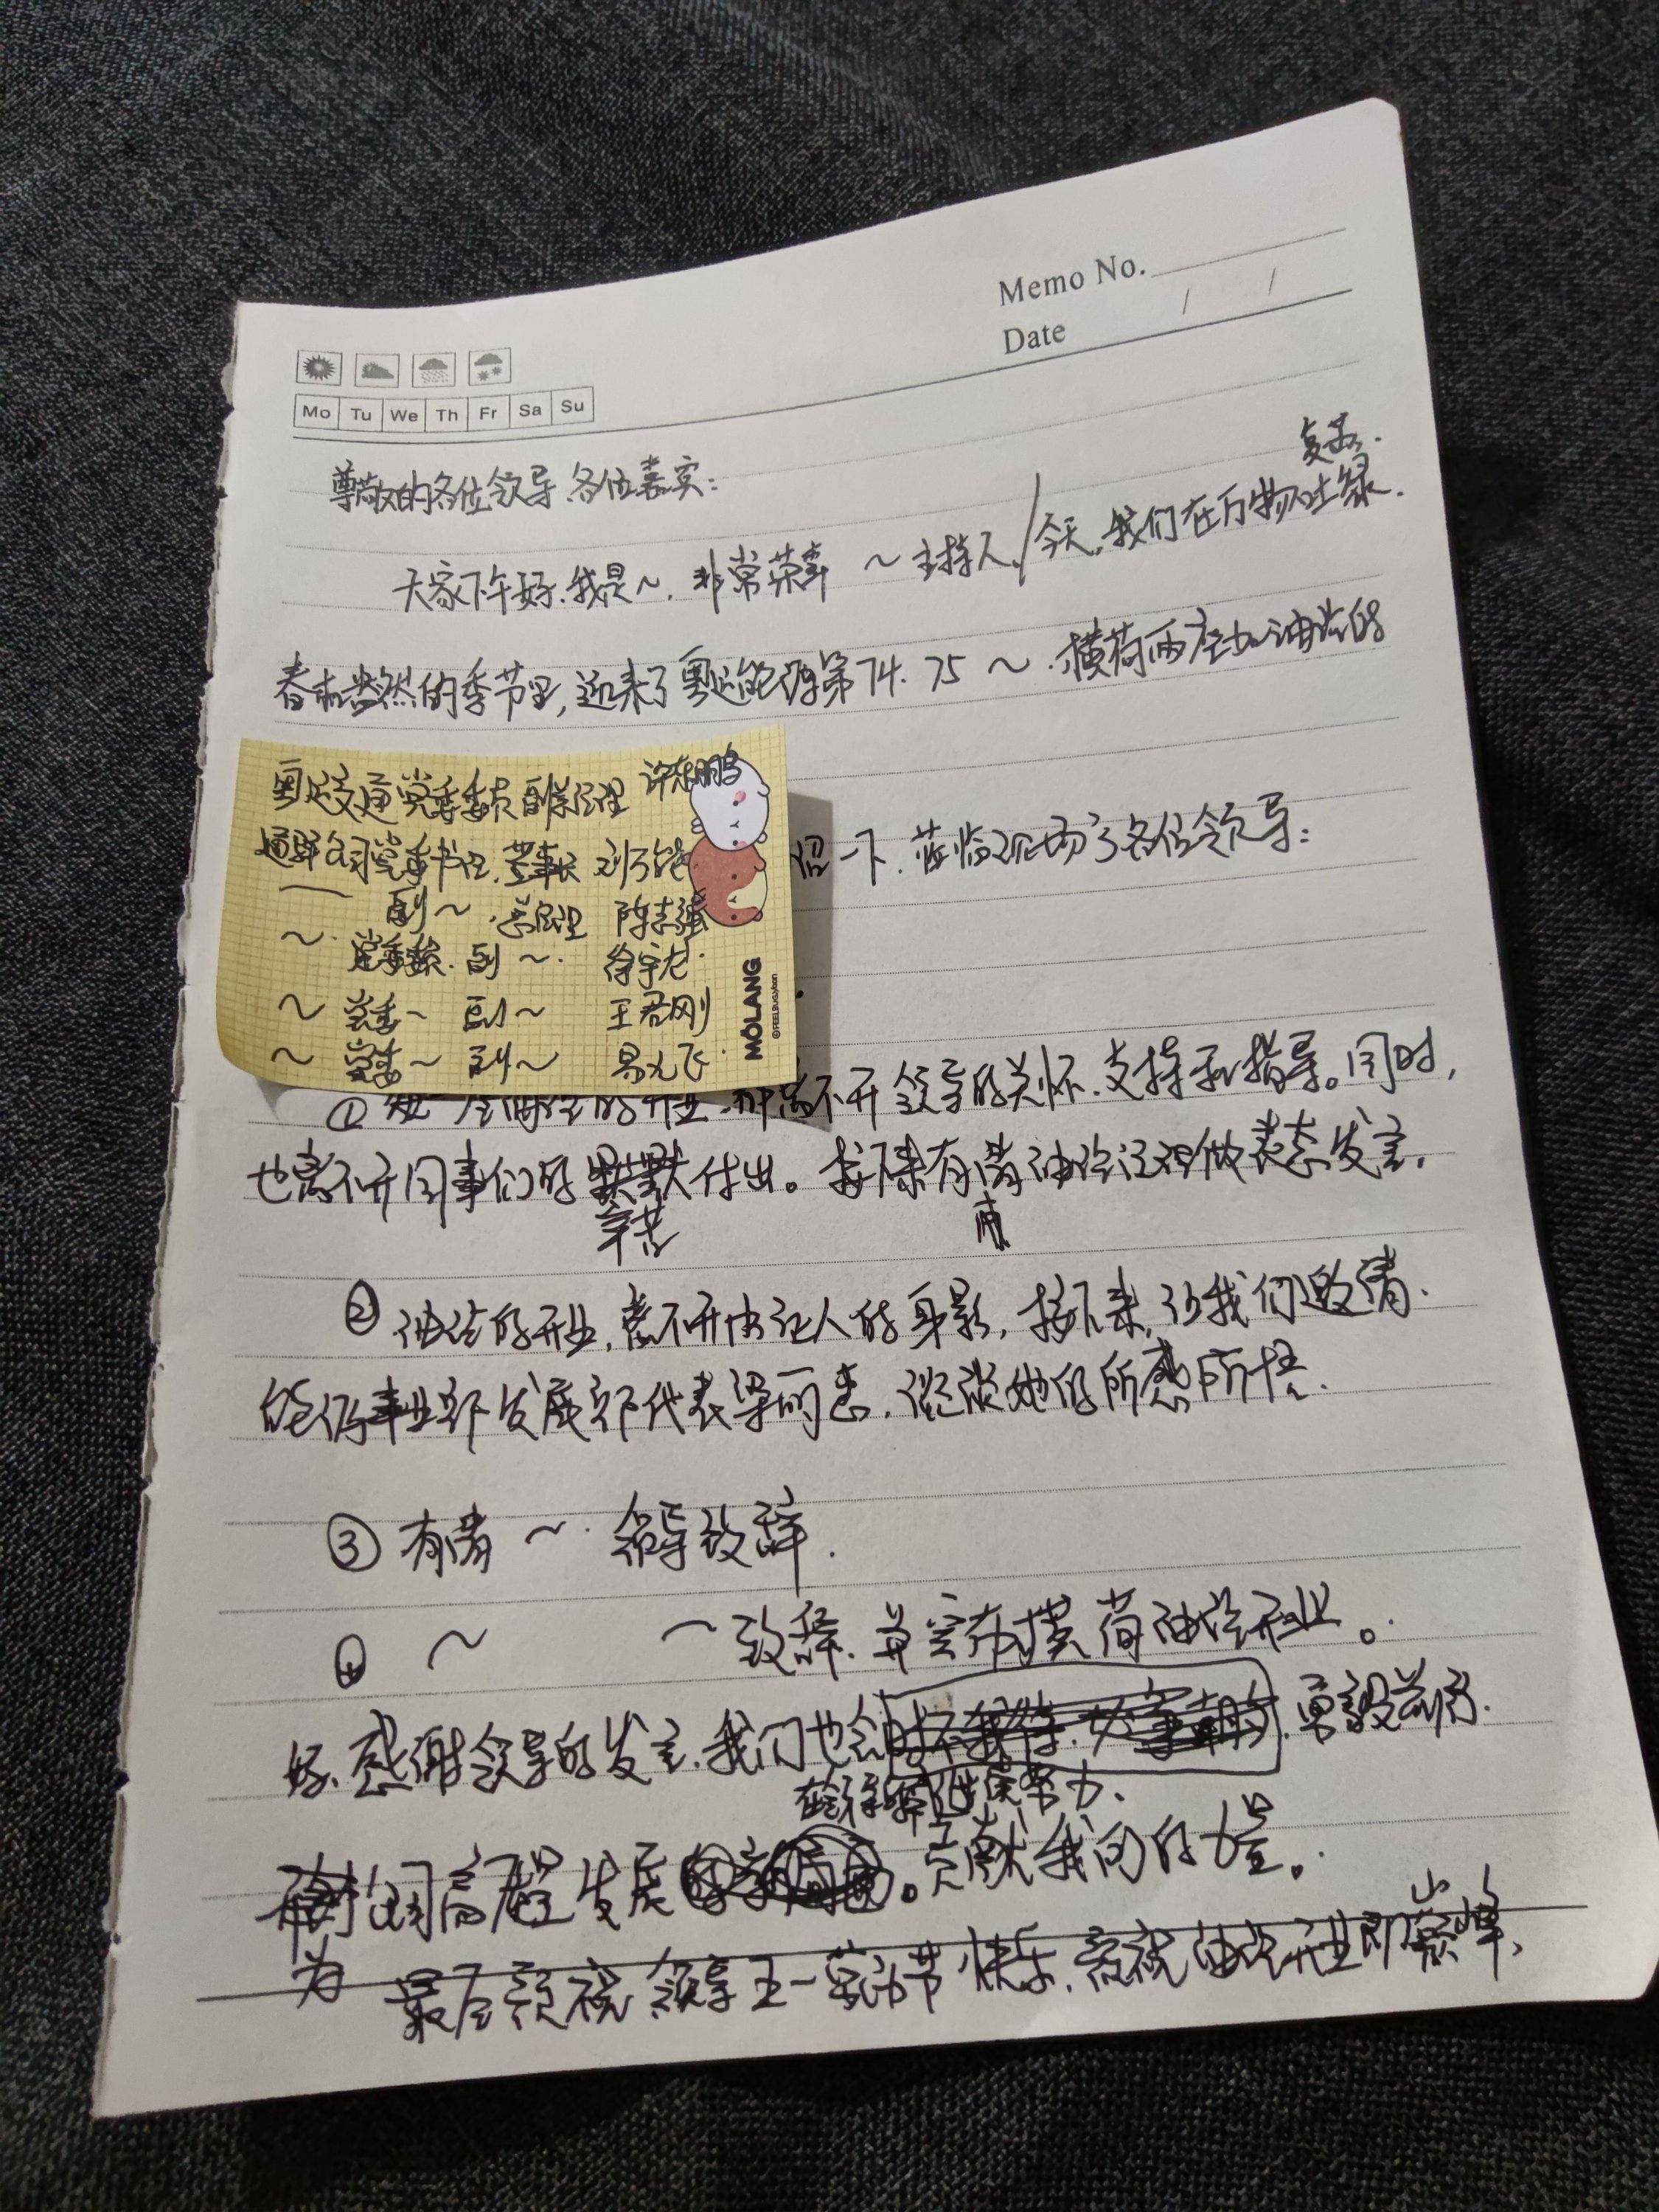 Memo No.
Date / /
Mo Tu We Th Fr Sa Su
尊敬的各位领导、各位嘉宾:
复苏.
大家下午好.我是~.非常荣幸 ~主持人/今天,我们在万物吐绿.
春意盎然的季节里,迎来了粤运能源第74.75~.横荷两座加油站的
粤运交通党委委员副总经理 许东鹏
通驿公司党委书记.董事长 刘万能
副~.总经理 陈志强
~.党委 副~. 徐宇龙.
~ 党委~ 副~ 王君刚
~ 党委~ 副~ 易义飞
MOLANG
绍一下.莅临现场了各位领导:
① 每一座油站的开业.都离不开领导的关怀.支持和指导。同时,
也离不开同事们的默默付出。接下来有请油站经理做表态发言,
辛苦
② 油站的开业,离不开油证人的身影,接下来,让我们邀请.
能源事业部发展部代表梁丽惠,谈谈她的所感所悟.
③ 有请~.领导致辞.
④ ~ ~致辞.并宣布横荷油站开业。
好.感谢领导的发言.我们也会时不我待.勇毅前行.
努力.
公司高质量发展。贡献我们的力量。
为
最后预祝领导五一劳动节快乐.预祝油站开业即巅峰、